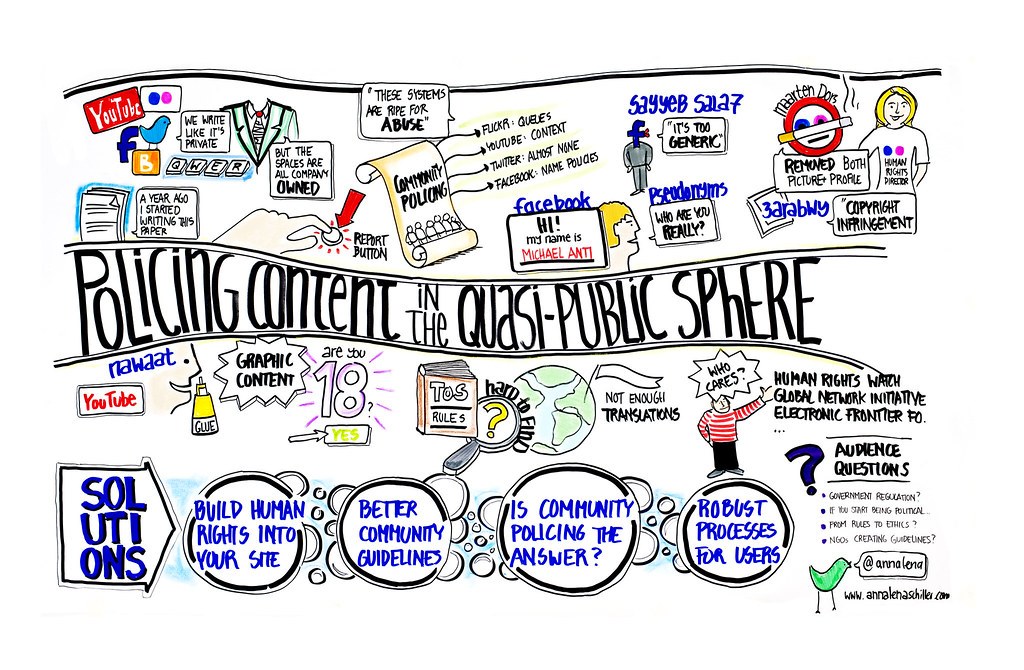 YouTube
f
B
WE WRITE
LIKE IT'S
PRIVATE
QWER
BUT THE
SPACES ARE
ALL COMPANY
OWNED
A YEAR AGO
I STARTED
WRITING THIS
PAPER
REPORT
BUTTON
"THESE SYSTEMS
ARE RIPE FOR
ABUSE"
COMMUNITY
POLICING
FLICKR: QUELES
YOUTUBE: CONTEXT
TWITTER: ALMOST NONE
FACEBOOK: NAME POLICIES
facebook
HI!
my name is
MICHAEL ANTI
SAYYEB SALA7
f
"IT'S TOO
GENERIC"
Pseudonyms
WHO ARE YOU
REALLY?
maarten Dors
REMOVED BOTH
PICTURE + PROFILE
HUMAN
RIGHTS
DIRECTOR
3arabwy
"COPYRIGHT
INFRINGEMENT
POLICING CONTENT IN THE QUASI-PUBLIC SPHERE
nawaat
YouTube
GLUE
GRAPHIC
CONTENT
are you
18?
YES
TOS
RULES
hard to FIND
?
NOT ENOUGH
TRANSLATIONS
WHO
CARES?
HUMAN RIGHTS WATCH
GLOBAL NETWORK INITIATIVE
ELECTRONIC FRONTIER FO.
...
? AUDIENCE
QUESTIONS
• GOVERNMENT REGULATION?
• IF YOU START BEING POLITICAL...
• FROM RULES TO ETHICS?
• NGOs CREATING GUIDELINES?
SOL
UTI
ONS
BUILD HUMAN
RIGHTS INTO
YOUR SITE
BETTER
COMMUNITY
GUIDELINES
IS COMMUNITY
POLICING THE
ANSWER?
ROBUST
PROCESSES
FOR USERS
@annalena
www.annalenaschiller.com